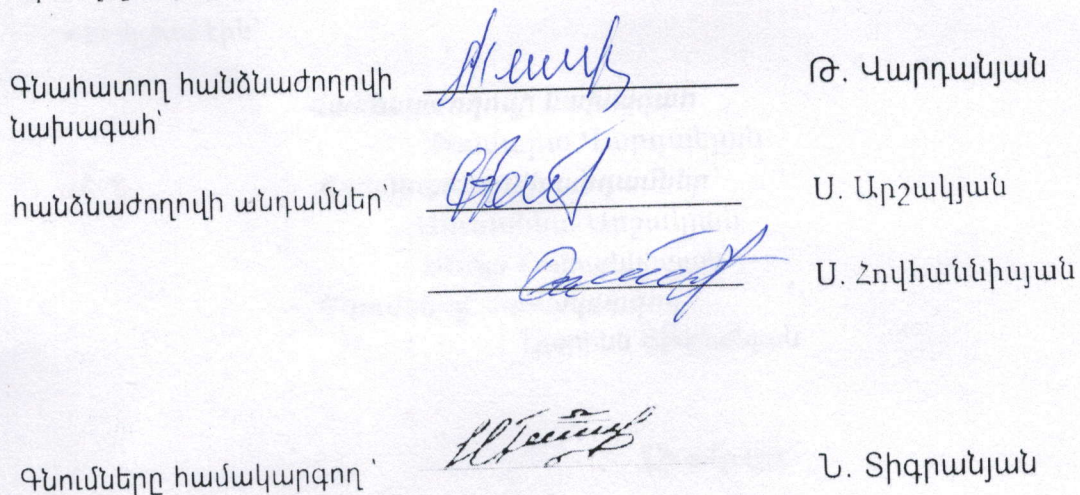 Գնահատող հանձնաժողովի
նախագահ՝ Թ. Վարդանյան
հանձնաժողովի անդամներ՝ Ս. Արշակյան
Ս. Հովհաննիսյան
Գնումները համակարգող ՝ Ն. Տիգրանյան